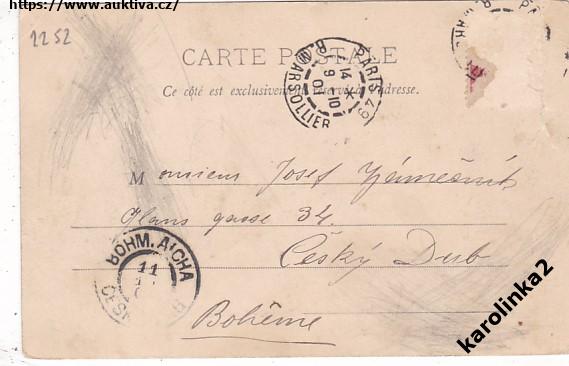 https://www.auktiva.cz/
2252
CARTE POSTALE
Ce côté est exclusivement réservé à l'adresse.
PARIS 67
14
9 10
01
R. MARSOLLIER
Monsieur Josef
gasse 34.
Český Dub
BÖHM. AICHA
11
ČESK
Bohême
karolinka2